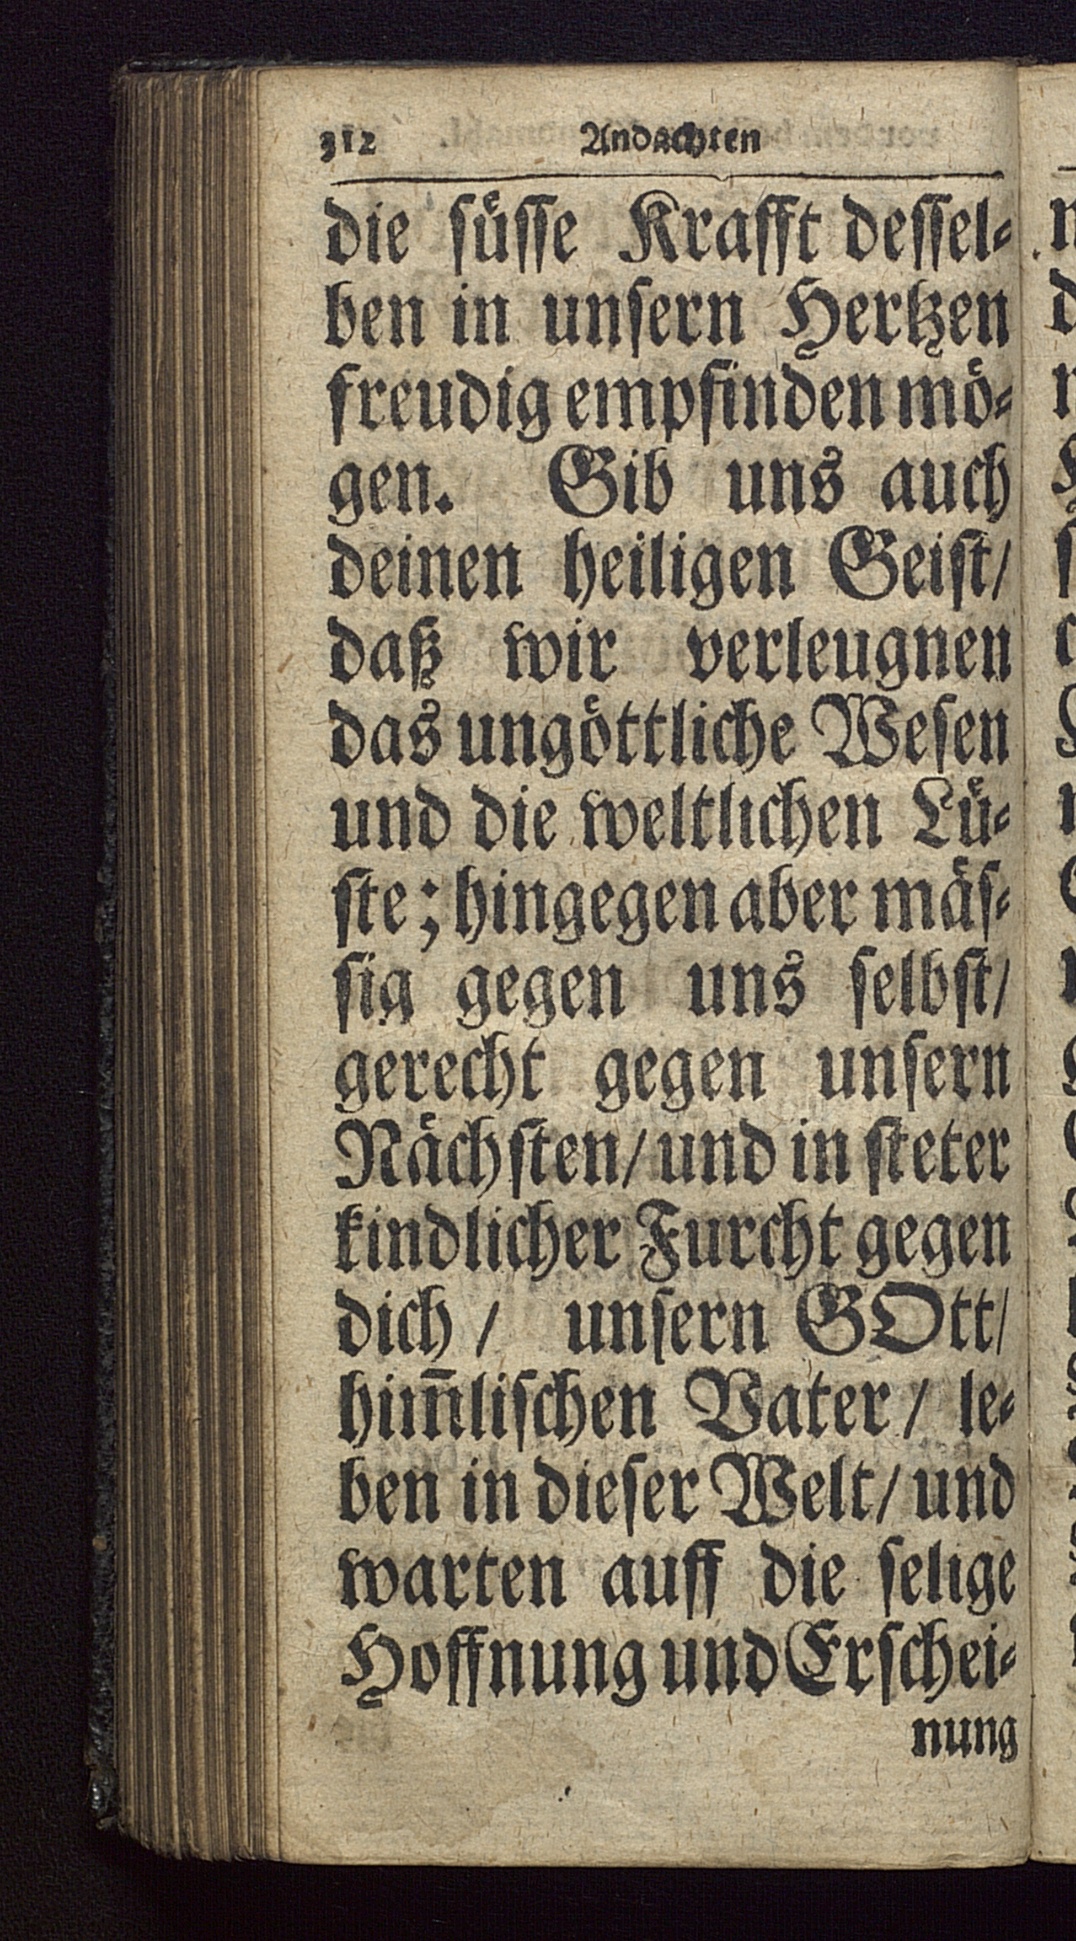 312 Andachten
die ſuͤſſe Krafft deſſel⸗
ben in unſern Hertzen
freudig empfinden moͤ⸗
gen. Gib uns auch
deinen heiligen Geiſt/
daß wir verleugnen
das ungoͤttliche Weſen
und die weltlichen Luͤ⸗
ſte; hingegen aber maͤſ⸗
ſig gegen uns ſelbſt/
gerecht gegen unſern
Naͤchſten/ und in ſteter
kindlicher Furcht gegen
dich / unſern GOtt/
him̄liſchen Vater / le⸗
ben in dieſer Welt/ und
warten auff die ſelige
Hoffnung und Erſchei⸗
nung